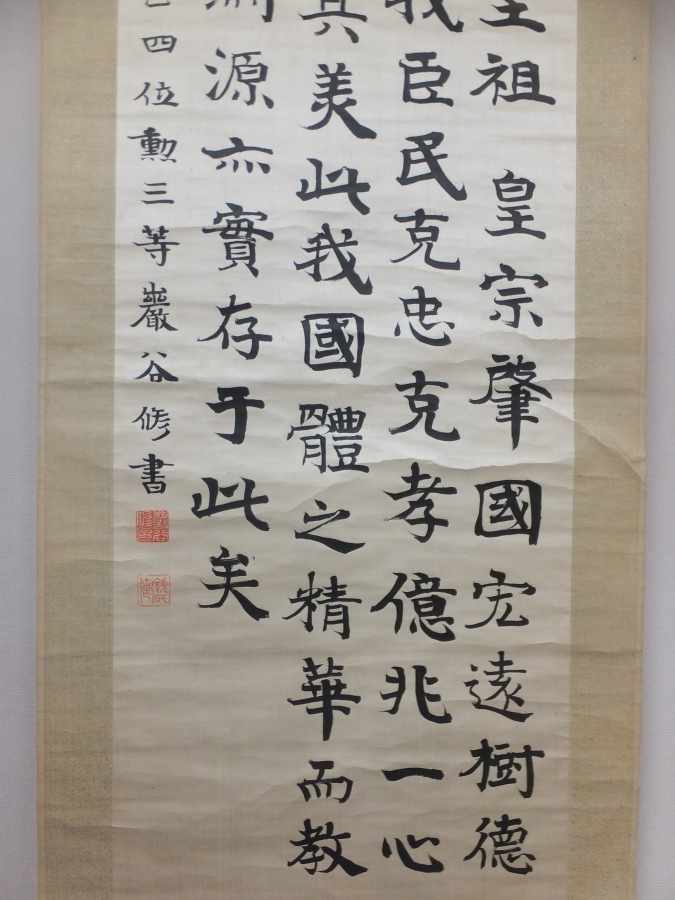 皇祖 皇宗肇國宏遠樹德
我臣民克忠克孝億兆一心
其美此我國體之精華而教
淵源亦實存于此矣
四位勲三等巖谷修書